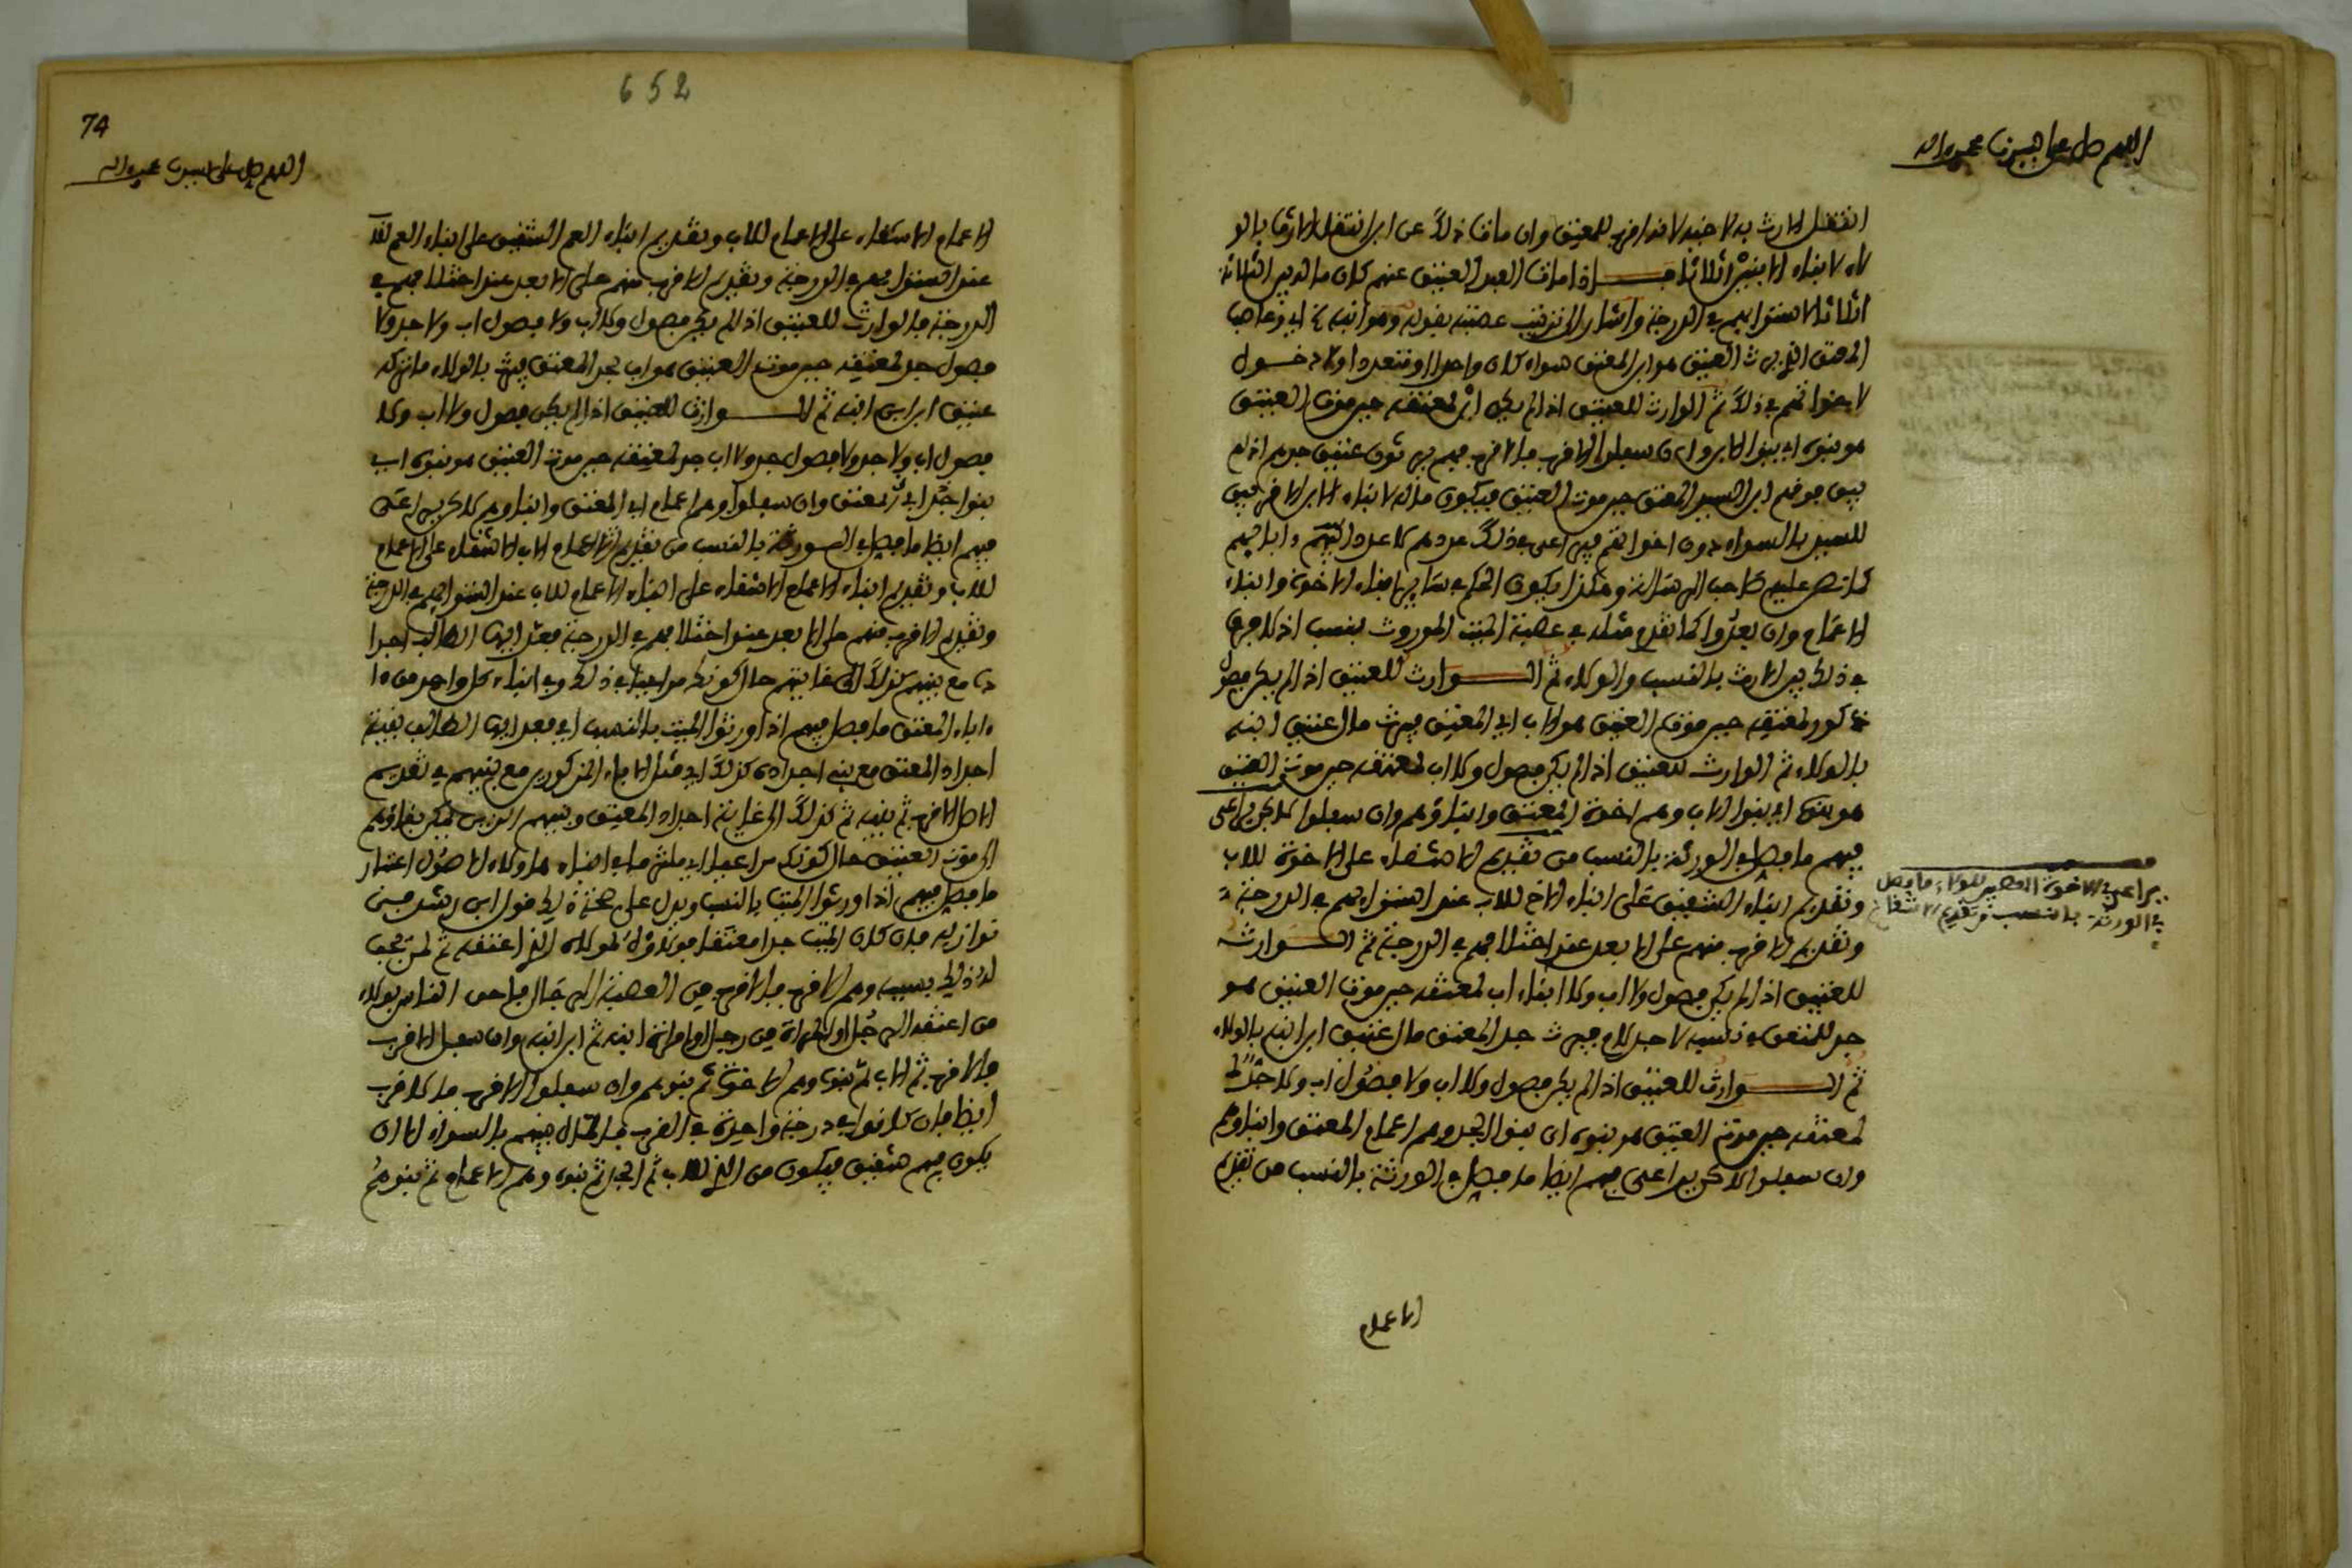 اللهم صل على سيدنا محمد واله
انتقل الارث به لاخيه لانه اقرب للمعتق وان مات ذلك عن ابن انتقل الارث بالو
لاء لابناء الابنين اثلاثا فاذا مات العبد العتيق عنهم كان ماله بين الثلاثة
اثلاثا لاستوايهم في الدرجة واشار الى ترتيب عصبته بقوله وهو ابنه اي وعاصب
المعتق الذي يرث العتيق هو ابن المعتق سواء كان واحدا او متعددا ولا دخول
لاخواتهم في ذلك ثم الوارث للعتيق اذا لم يكن ابن لمعتقه حين موت العتيق
هو بنوه اي بنوا الابن وان سفلوا الاقرب فالاقرب فهم يرثون عتيق جدهم اذا لم
يبق موضع ابن السيد المعتق حين موت العتيق فيكون ماله لابناء الابن الاقربين
للسيد بالسواء دون اخواتهم فيراعى في ذلك عددهم لا عدد ابايهم
كما نص عليه صاحب الرسالة وهكذا يكون الحكم في ساير ابناء الاخوة وابناء
الاعمام وان بعدوا كما تقدم مثله في عصبة الميت الموروث بنسب اذ لا فرق
في ذلك بين الارث بالنسب والولاء ثم الوارث للعتيق اذا لم يكن فصل
ذكور لمعتقه حين موت العتيق هو الاب اي اب المعتق فيرث مال عتيق ابنه
بالولاء ثم الوارث للعتيق اذا لم يكن فصول ولا اب لمعتقه حين موت العتيق
هو بنوه اي بنوا الاب وهم اخوة المعتق وابناؤهم وان سفلوا لاكن يراعى
فيهم ما فصل في الورثة بالنسب من تقديم الاشقاء على الاخوة للاب
وتقديم ابناء الشقيق على ابناء الاخ للاب عند استوايهم في الدرجة
وتقديم الاقرب منهم على الابعد عند اختلافهم في الدرجة ثم الوارث
للعتيق اذا لم يكن فصول ولا اب ولا ابناء اب لمعتقه حين موت العتيق هو
جد للمعتق في نسبه لا جد لام فيرث جد المعتق مال عتيق ابن ابنه بالولاء
ثم الوارث للعتيق اذا لم يكن فصول ولا اب ولا فصول اب ولا جد
لمعتقه حين موت العتيق هو بنوه اي بنوا الجد وهم اعمام المعتق وابناؤهم
وان سفلوا لاكن يراعى فيهم ايضا ما فصل في الورثة بالنسب من تقديم
يراعى في الاخوة الوارثين للولاء ما فصل
في الورثة بالنسب وتقديم الاشقاء
الاعمام
652
74
اللهم صل على سيدنا محمد واله
الاعمام الاشقاء على الاعمام للاب وتقديم ابناء العم الشقيق على ابناء العم للاب
عند استوايهم في الدرجة وتقديم الاقرب منهم على الابعد عند اختلافهم في
الدرجة فالوارث للعتيق اذا لم يكن فصول ولا اب ولا فصول اب ولا جد ولا
فصول جد لمعتقه حين موت العتيق هو اب جد المعتق فيرث بالولاء ما تركه
عتيق ابن ابن ابنه ثم الوارث للعتيق اذا لم يكن فصول ولا اب ولا
فصول اب ولا جد ولا فصول جد ولا اب جد لمعتقه حين موت العتيق هو بنوه اي
بنوا جد اب المعتق وان سفلوا وهم اعمام اب المعتق وابناؤهم لاكن يراعى
فيهم ايضا ما فصل في الورثة بالنسب من تقديم اعمام الاب الاشقاء على الاعمام
للاب وتقديم ابناء الاعمام الاشقاء على ابناء الاعمام للاب عند استوايهم في الدرجة
وتقديم الاقرب منهم على الابعد عند اختلافهم في الدرجة فعد ايها الطالب اجدا
دا مع بنيهم كذلك الى غايتهم حال كونك مراعيا في ذلك وفي ابناء كل واحد من ا
باء المعتق ما فصل فيهم اذا ورثوا الميت بالنسب اي فعد ايها الطالب بقية
اجداد المعتق مع بني اجداده كذلك اي مثل الاباء المذكورين مع بنيهم في تقديم
الاصل الاقرب ثم بنيه ثم كذلك الى غاية اجداد المعتق وبنيهم الذين يمكن بقاؤهم
الى موت العتيق حال كونك مراعيا اي ملتزما في ابناء هاولاء الاصول اعتبار
ما فصل فيهم اذا ورثوا الميت بالنسب ويدل على صحة ذلك قول ابن رشد من
نوازله فان كان الميت جدا معتقا فولاؤه لمولاه الذي اعتقه ثم لمن يجب
له ذلك بسببه وهم الاقرب فالاقرب من العصبة الرجال فاحق الناس بولاء
من اعتقه الرجل او المراة من رجل او امراة ابنه ثم ابن ابنه وان سفل الاقرب
فالاقرب ثم الاب ثم بنوه وهم الاخوة ثم بنوهم وان سفلوا الاقرب فالاقرب
ايضا فان كانوا في درجة واحدة في القرب فالمال بينهم بالسواء الا ان
يكون فيهم شقيق فيكون من الذي للاب ثم الجد ثم بنوه وهم الاعمام ثم بنوهم